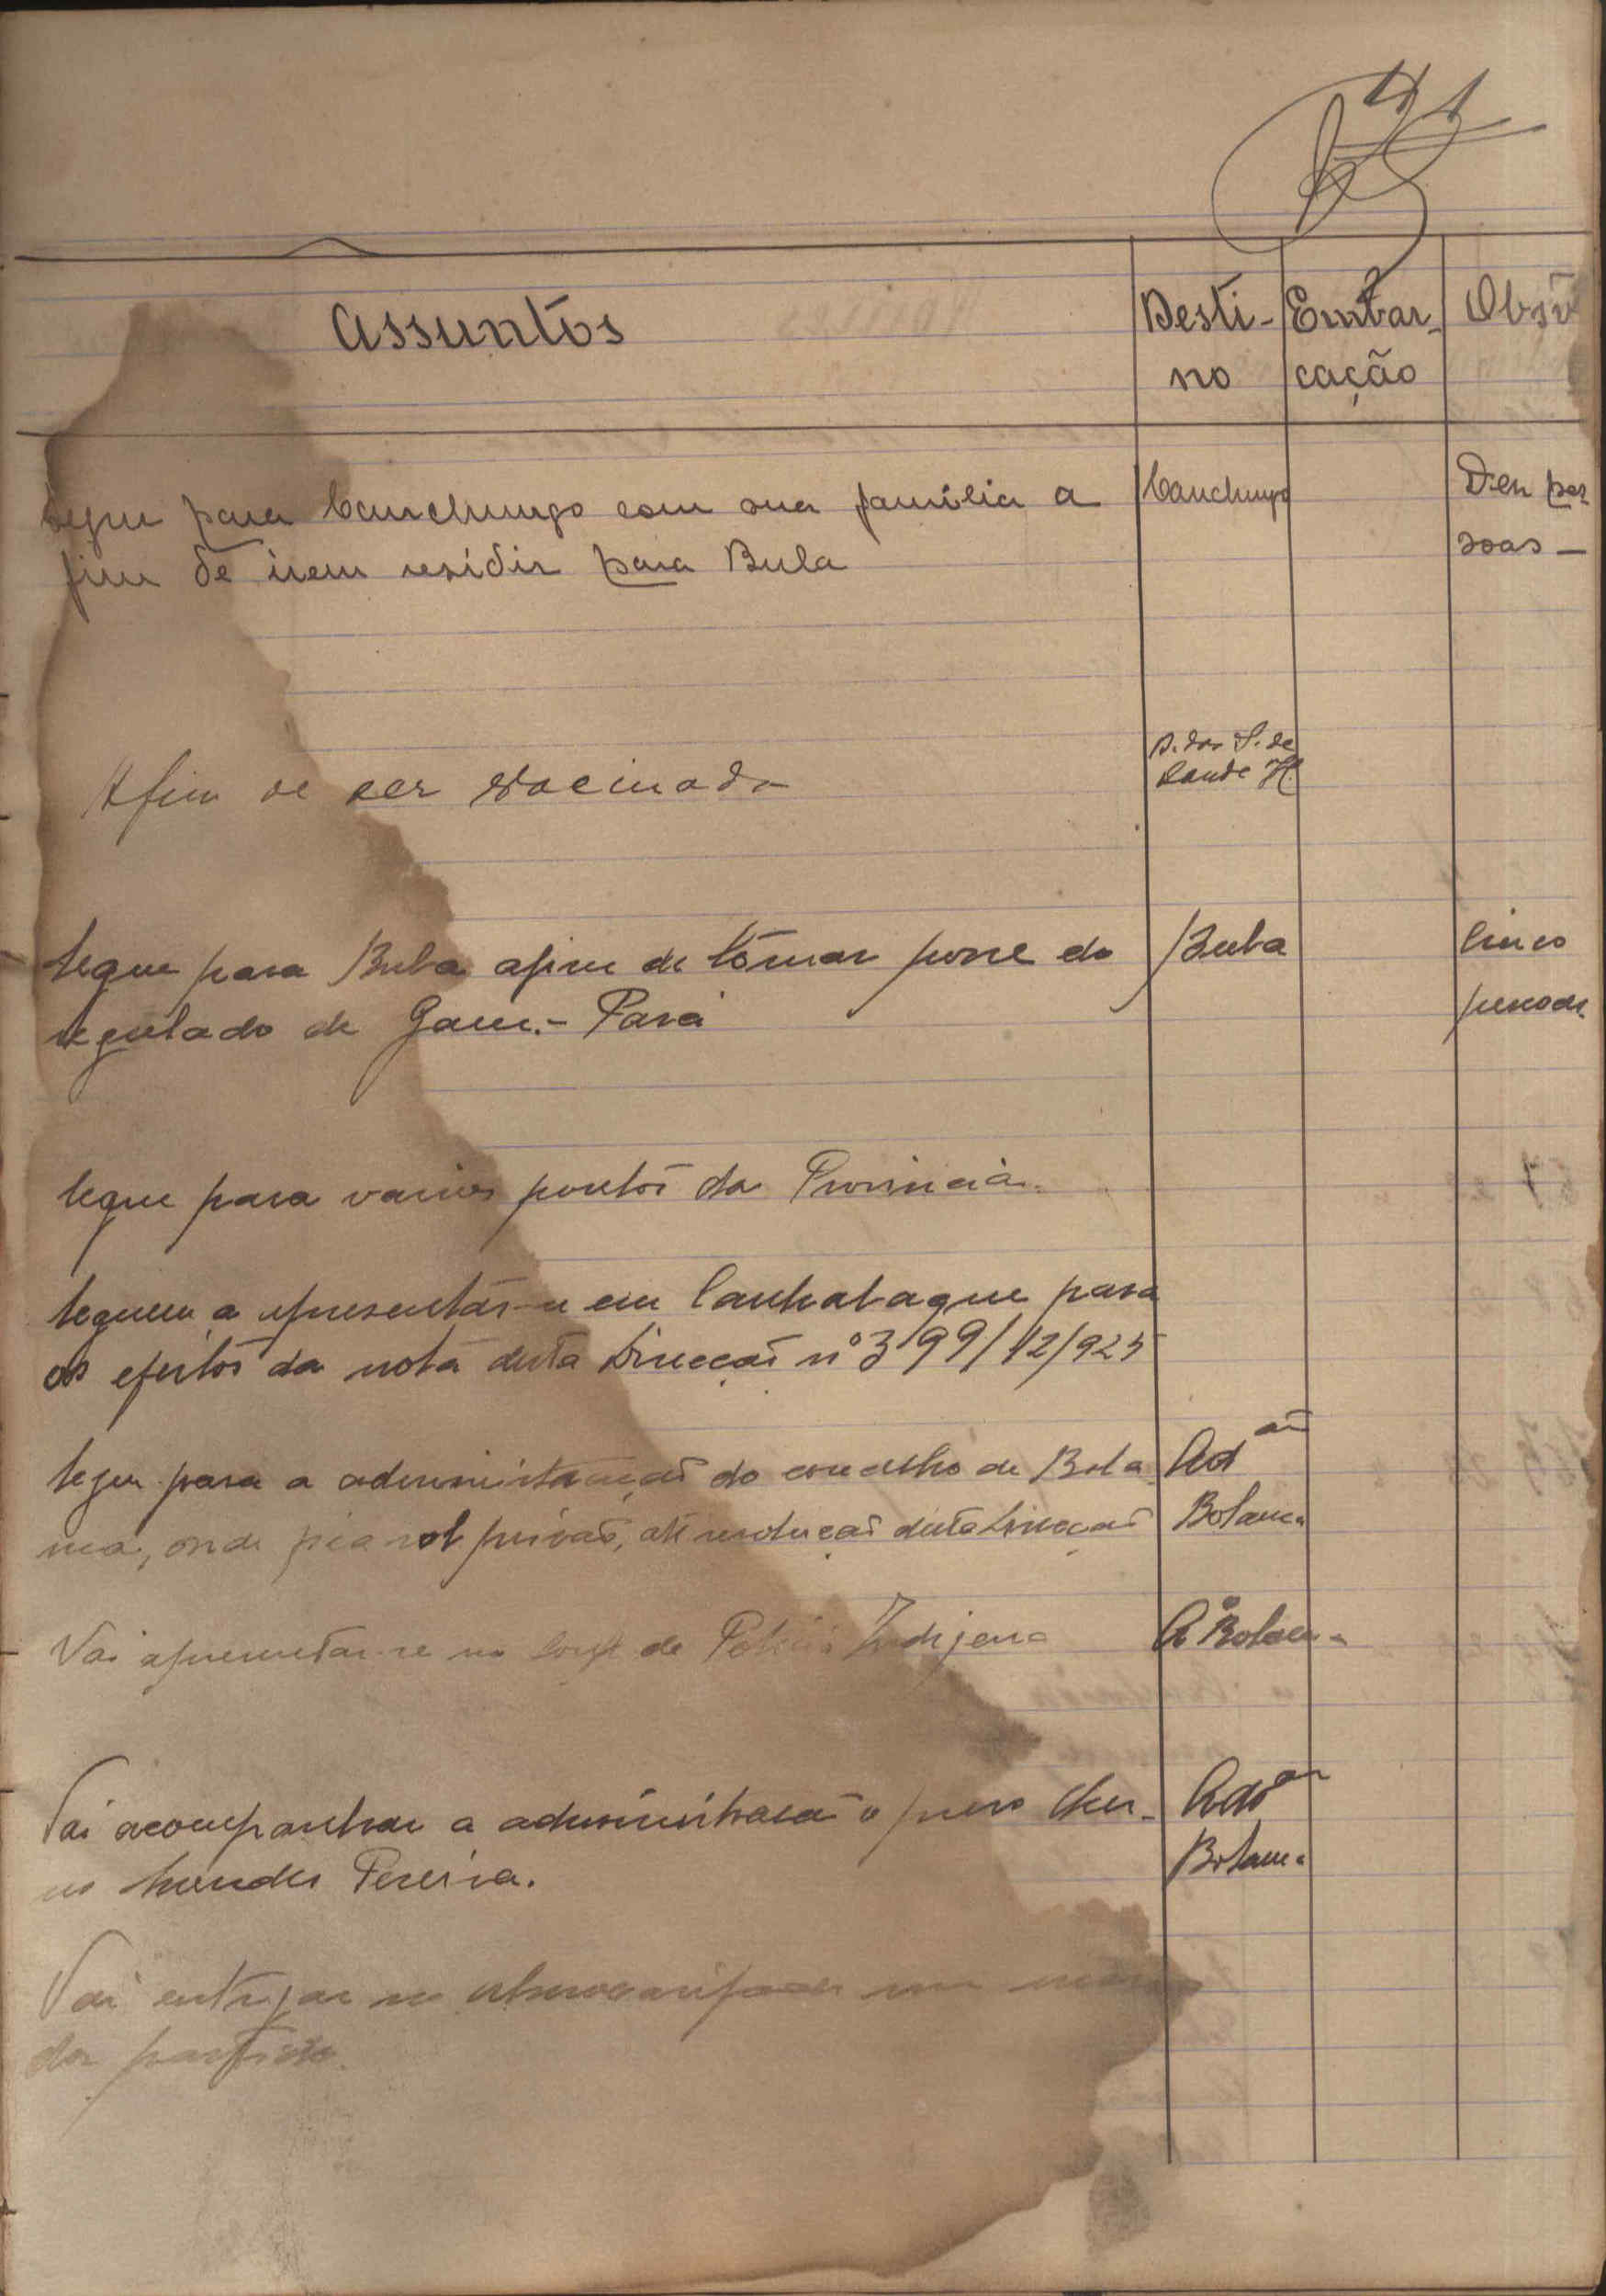 41
Assuntos
Desti-
no
Embar-
cação
Obsv
Segue para Canchungo com sua familia a
fim de irem residir para Bula
Canchungo
Dez pes
soas —
Afim de ser vacinado
D. dos S. de
Saude H.
Segue para Buba afim de tômar posse do
regulado de Gam.- Pará
Buba
Cinco
pessoas
Segue para varios pontos da Provincia.
Seguem a apresentar-se em Canhabaque para
os efeitos da nota desta Direcção nº 399/12/925
Segue para a administração do concelho de Bola
ma, onde fica sob prisão, até resolução desta Direcção
Ad ão
Bolama
Vai apresentar-se no Corpo de Policia Indijena
A Bolama
Vai acompanhar a administração o preso
Mendes Pereira.
Adão
Bolama
Vai entregar no